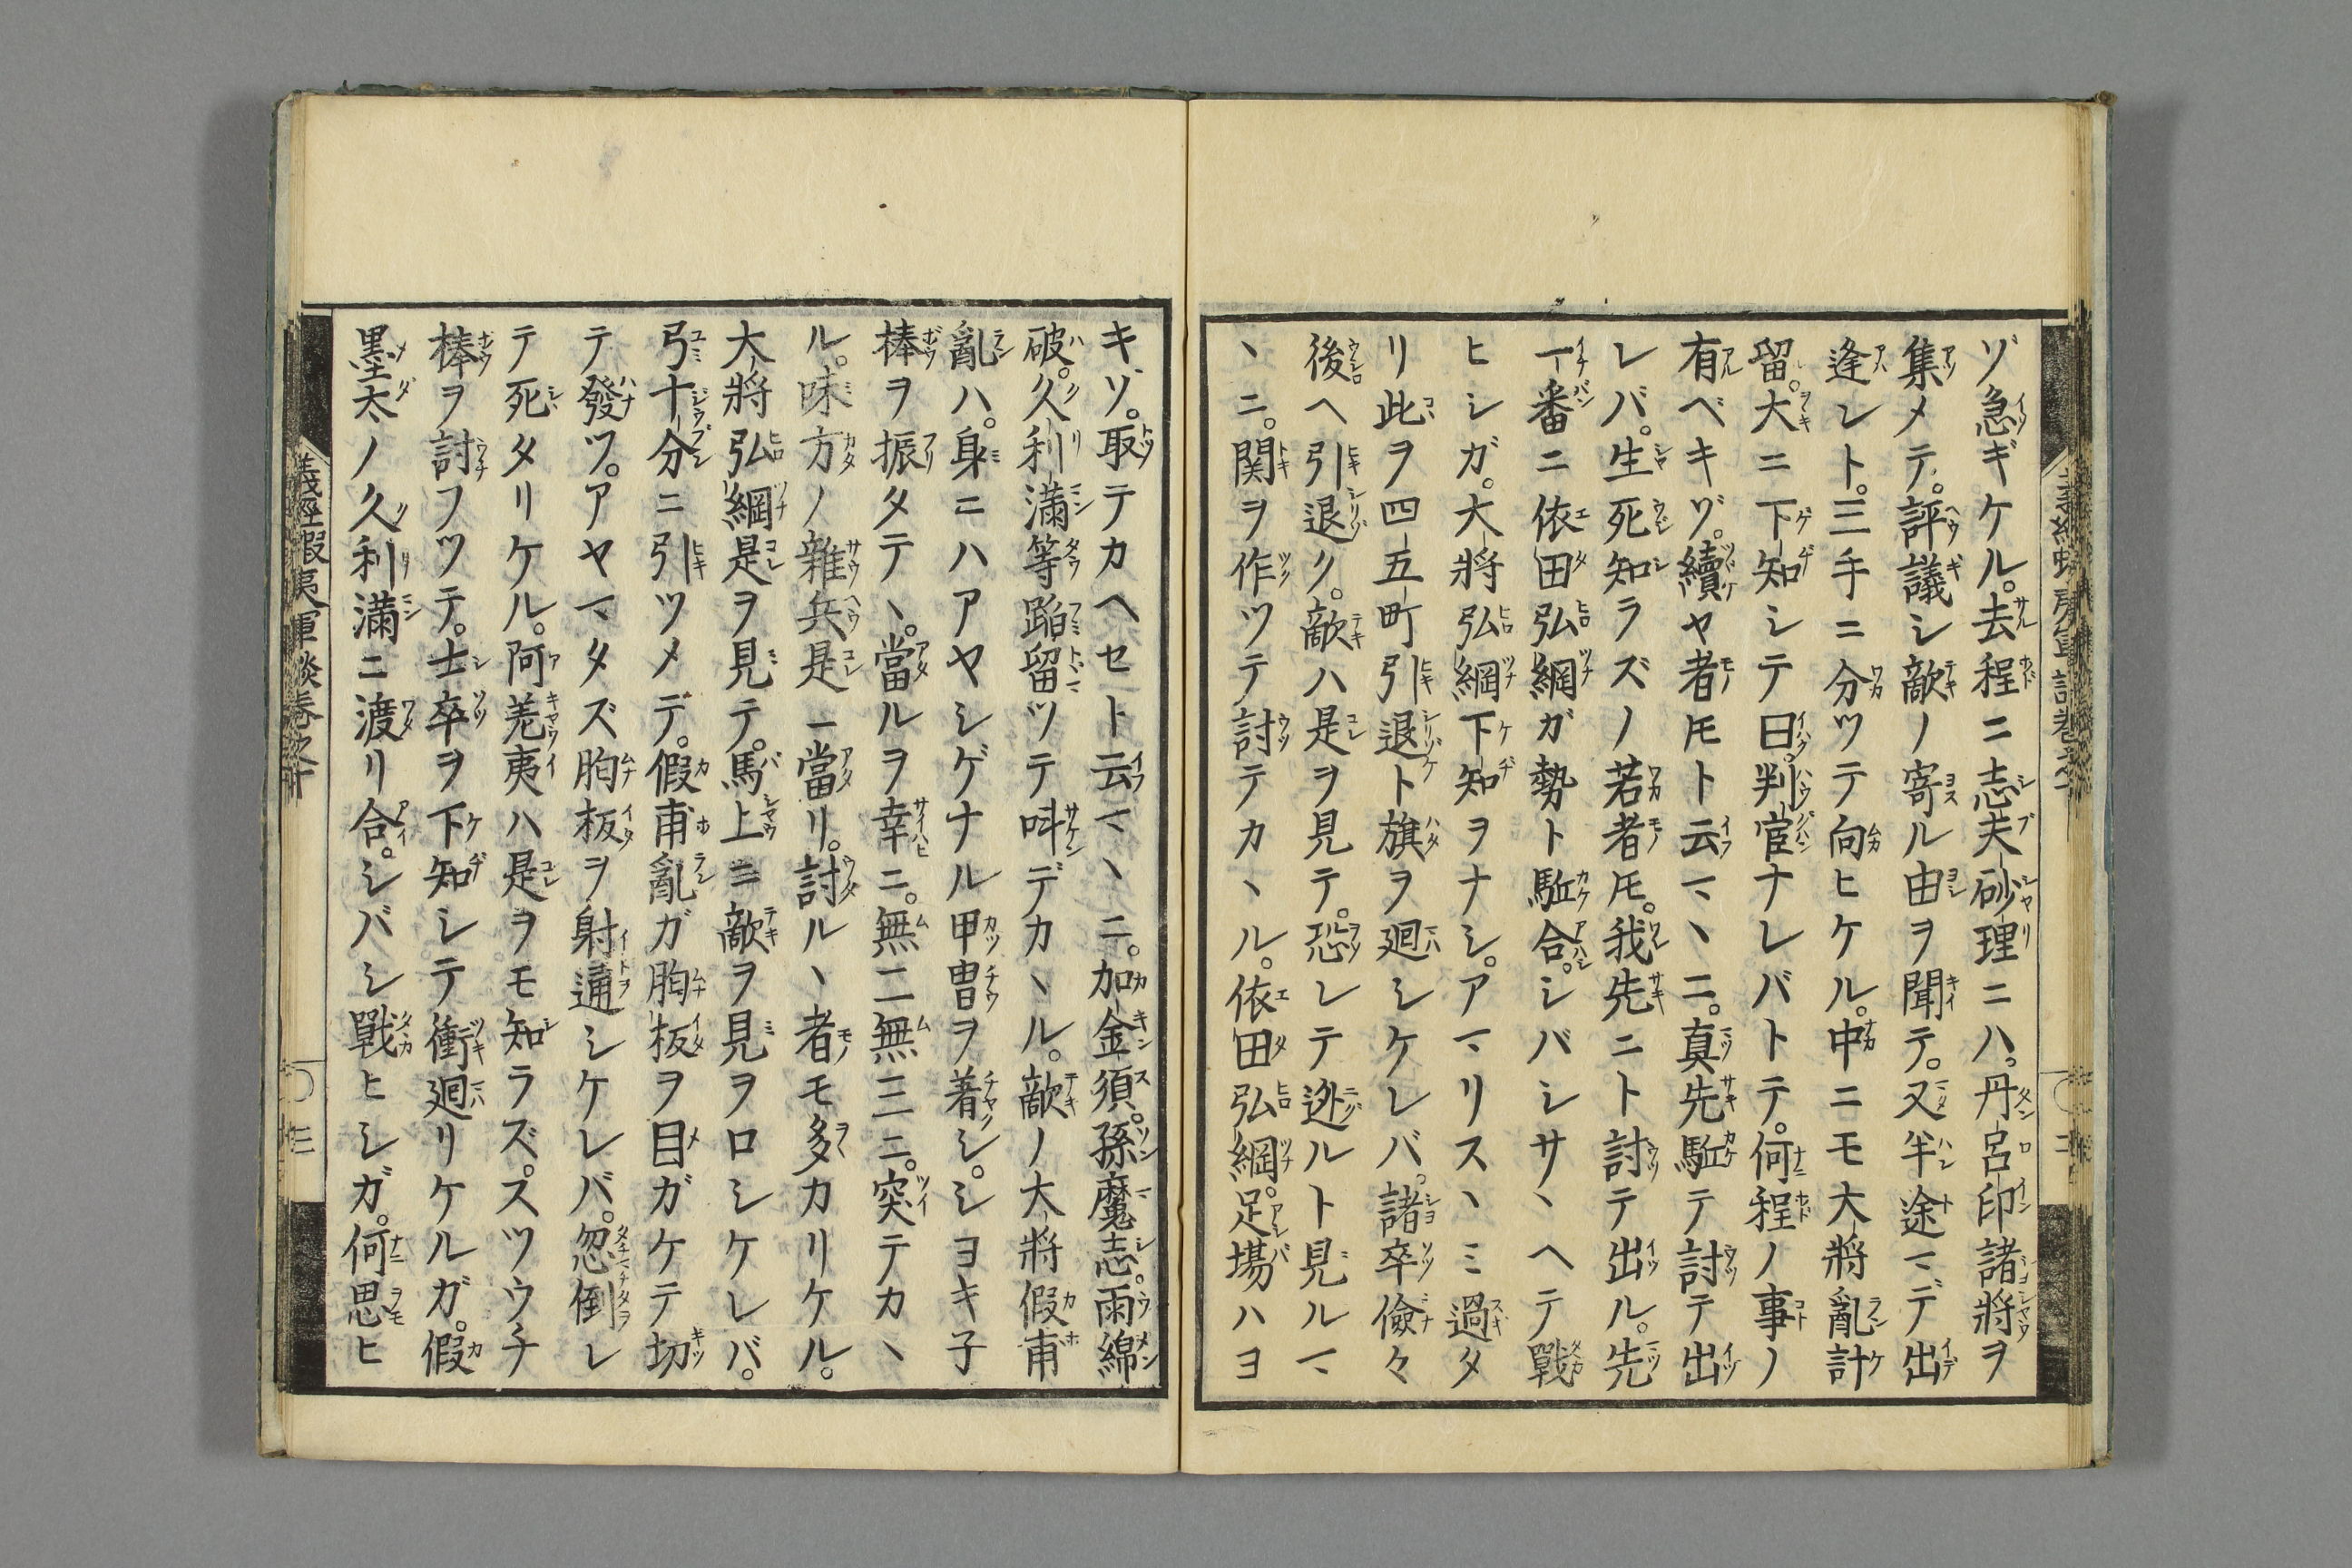 ゾ急ギケル。去程ニ志夫砂理ニハ。丹呂印諸將ヲ
集メテ。評議シ敵ノ寄ル由ヲ聞テ。又半途マデ出
逢レト。三手ニ分ツテ向ヒケル。中ニモ大將亂計
留。大ニ下知シテ曰。判官ナレバトテ。何程ノ事ノ
有ベキゾ。續ヤ者𪜈ト云マヽニ。真先駈テ討テ出
レバ。生死知ラズノ若者𪜈。我先ニト討テ出ル。先
一番ニ依田弘綱ガ勢ト駈合。シバシサヽヘテ戰
ヒシガ。大將弘綱下知ヲナシ。アマリスヽミ過タ
リ此ヲ四五町引退ト旗ヲ廻シケレバ。諸卒儉々
後ヘ引退ク。敵ハ是ヲ見テ。恐レテ迯ルト見ルマ
ヽニ。関ヲ作ツテ討テカヽル。依田弘綱。足場ハヨ
キソ。取テカヘセト云マヽニ。加金須。孫魔志。雨綿
破。久利滿等蹈留ツテ呌デカヽル。敵ノ大將假甫
亂ハ。身ニハアヤシゲナル甲冑ヲ著シ。シヨキ子
棒ヲ振タテヽ。當ルヲ幸ニ。無二無三ニ。突テカヽ
ル。味方ノ雜兵是ニ當リ。討ルヽ者モ多カリケル。
大將弘綱是ヲ見テ。馬上ニ敵ヲ見ヲロシケレバ。
弓十分ニ引ツメデ。假甫亂ガ胸板ヲ目ガケテ切
テ發ツ。アヤマタズ胸板ヲ射通シケレバ。忽倒レ
テ死タリケル。阿羌夷ハ是ヲモ知ラズ。スツウチ
棒ヲ討フツテ。士卒ヲ下知シテ衝廻リケルガ。假
墨太ノ久利滿ニ渡リ合。シバシ戰ヒシガ。何思ヒ
義經蝦夷軍談卷之十
〇三